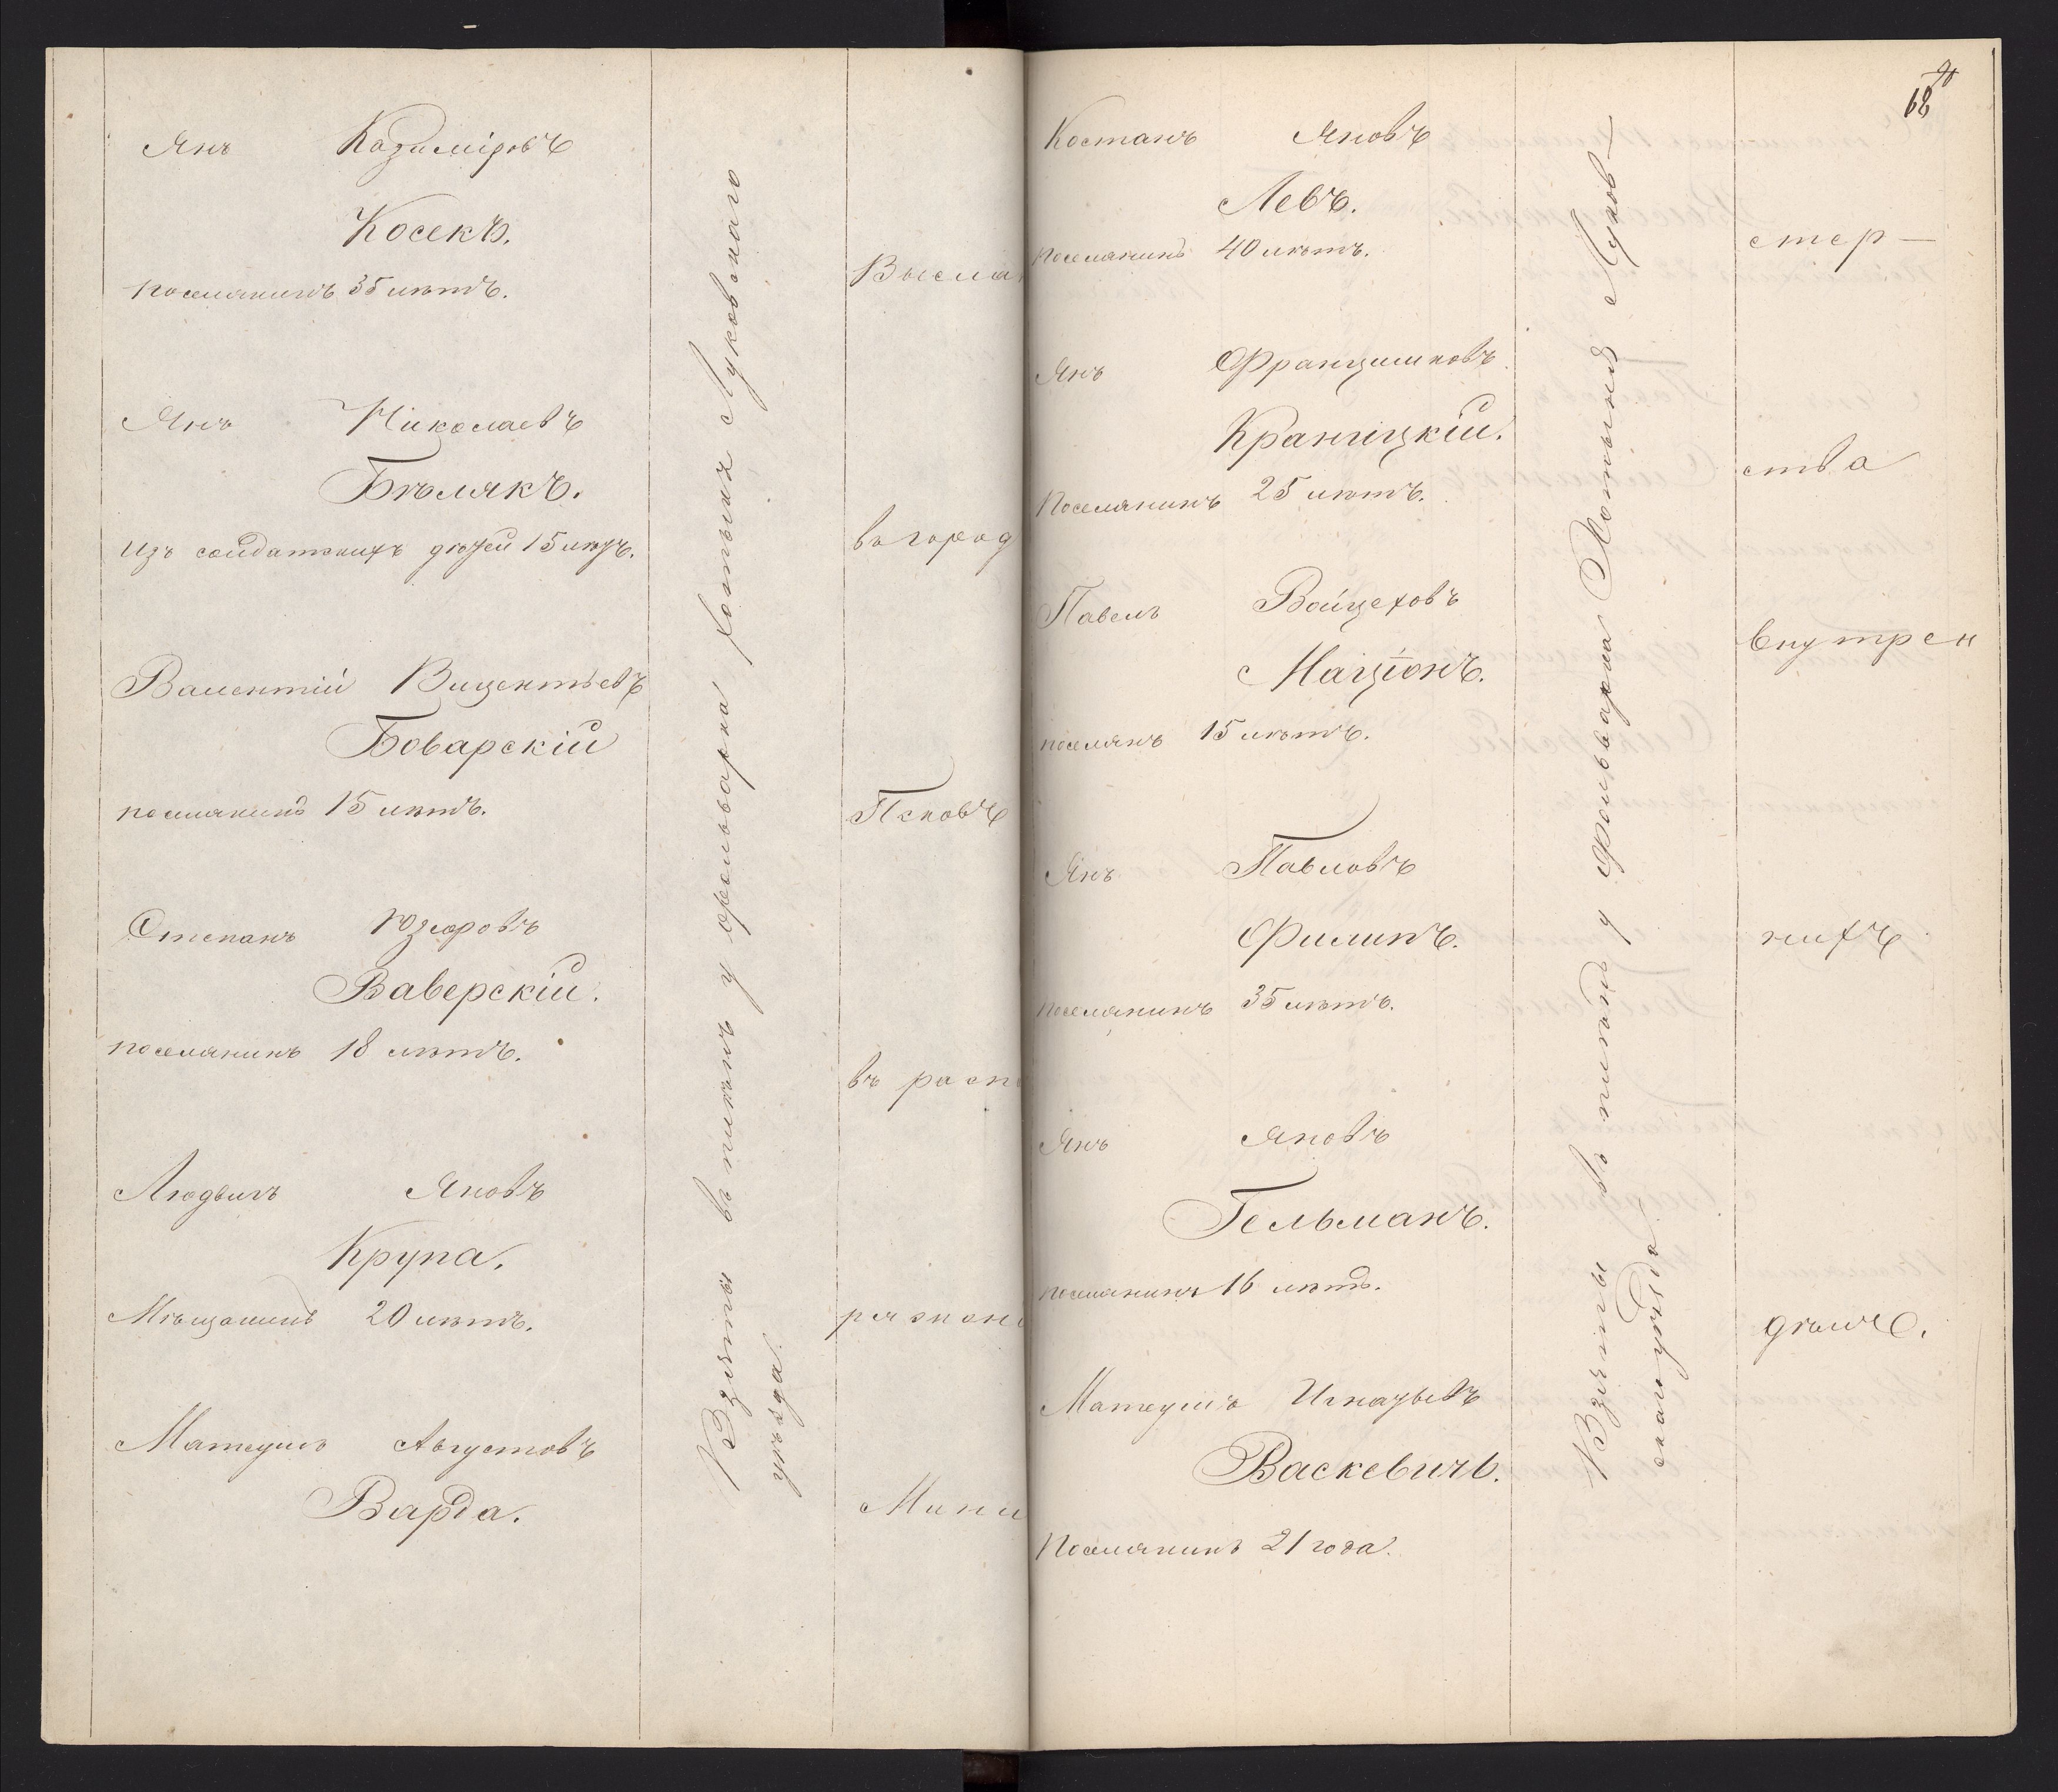 Янъ Казиміровъ
Косекъ.
поселянинъ 35 лѣтъ.
Янъ Николаевъ
Бѣлякъ.
изъ солдатскихъ дѣтей 15 лѣтъ.
Валентій Вицентьевъ
Боварскій
поселянинъ 15 лѣтъ.
Степанъ Юзефовъ
Ваверскій.
поселянинъ 18 лѣтъ.
Людвигъ Яновъ
Крупа.
Мѣщанинъ 20 лѣтъ.
Матеушъ Августовъ
Варда.
Взяты въ плѣнъ у фольварка Луковскаго
уѣзда.
Высла
въ город
Псковъ
въ расп
ряжен
Мини
68
Костанъ Яновъ
Левъ.
поселянинъ 40 лѣтъ.
Янъ Францишковъ
Краницкій.
Поселянинъ 25 лѣтъ.
Павелъ Войцеховъ
Націонъ.
поселянъ 15 лѣтъ.
Янъ Павловъ
Филипъ.
поселянинъ 35 лѣтъ.
Янъ Яновъ
Гельманъ.
поселянинъ 16 лѣтъ.
Матеушъ Игнацьевъ
Васкевичъ.
Поселянинъ 21 года.
Взяты въ плѣнъ у фольварка Луков-
скаго уѣзда
стер-
ства
внутрен
нихъ
дѣлъ.